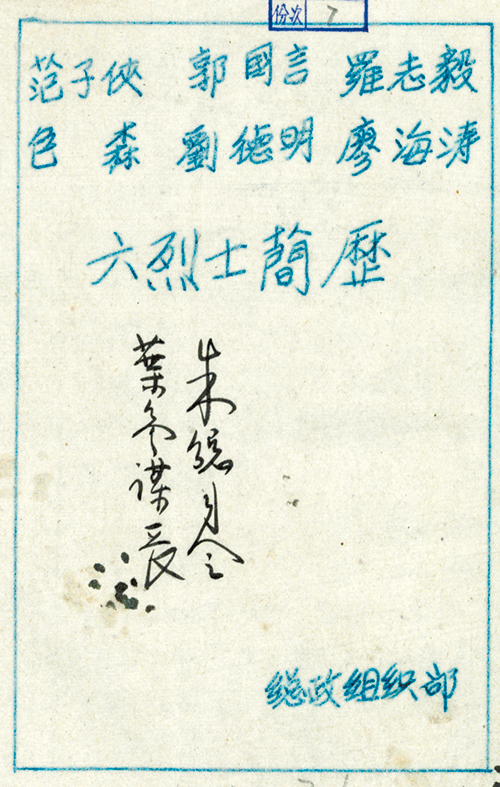 份次 7
范子俠 郭國言 羅志毅
色森 劉德明 廖海涛
六烈士簡歷
朱總司令
葉參謀長
總政組织部